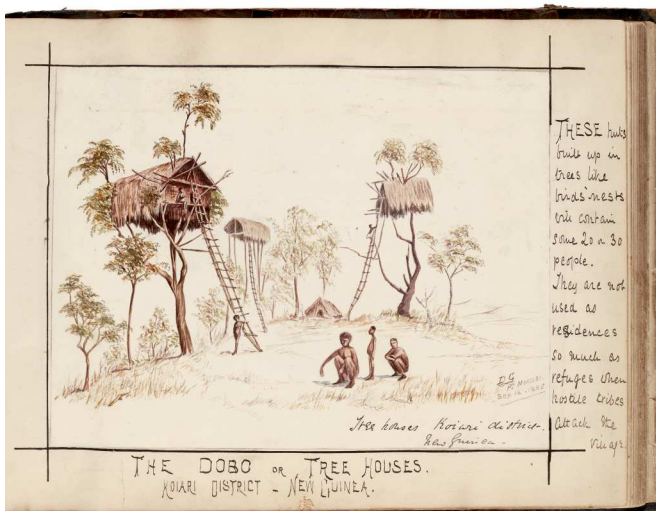 THESE huts
built up in
trees like
birds' nests
will contain
some 20 or 30
people.
They are not
used as
residences
so much as
refuges when
hostile tribes
attack the
village.
Tree houses Koiari district.
New Guinea.
THE DOBO OR TREE HOUSES.
KOIARI DISTRICT - NEW GUINEA.